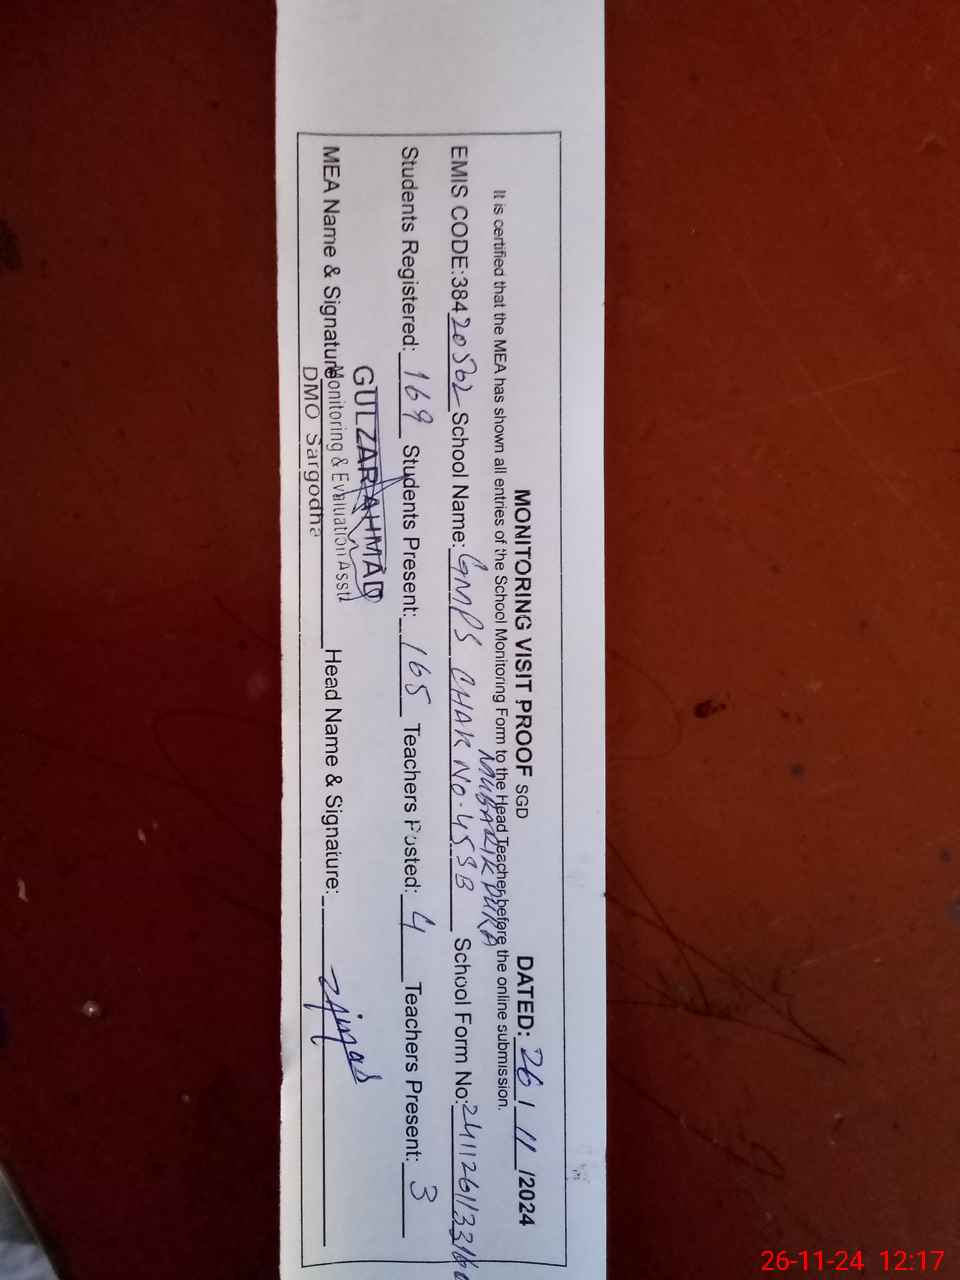 MONITORING VISIT PROOF SGD DATED: 26/11/2024
It is certified that the MEA has shown all entries of the School Monitoring Form to the Head Teacher before the online submission.
MUBARIK PURA
EMIS CODE:38420562 School Name: GMPS CHAK No. 45SB School Form No:
Students Registered: 169 Students Present: 165 Teachers Posted: 4 Teachers Present: 3
GULZAR AHMAD
MEA Name & Signature Head Name & Signature:
Monitoring & Evaluation Asstt
DMO Sargodha
26-11-24 12:17